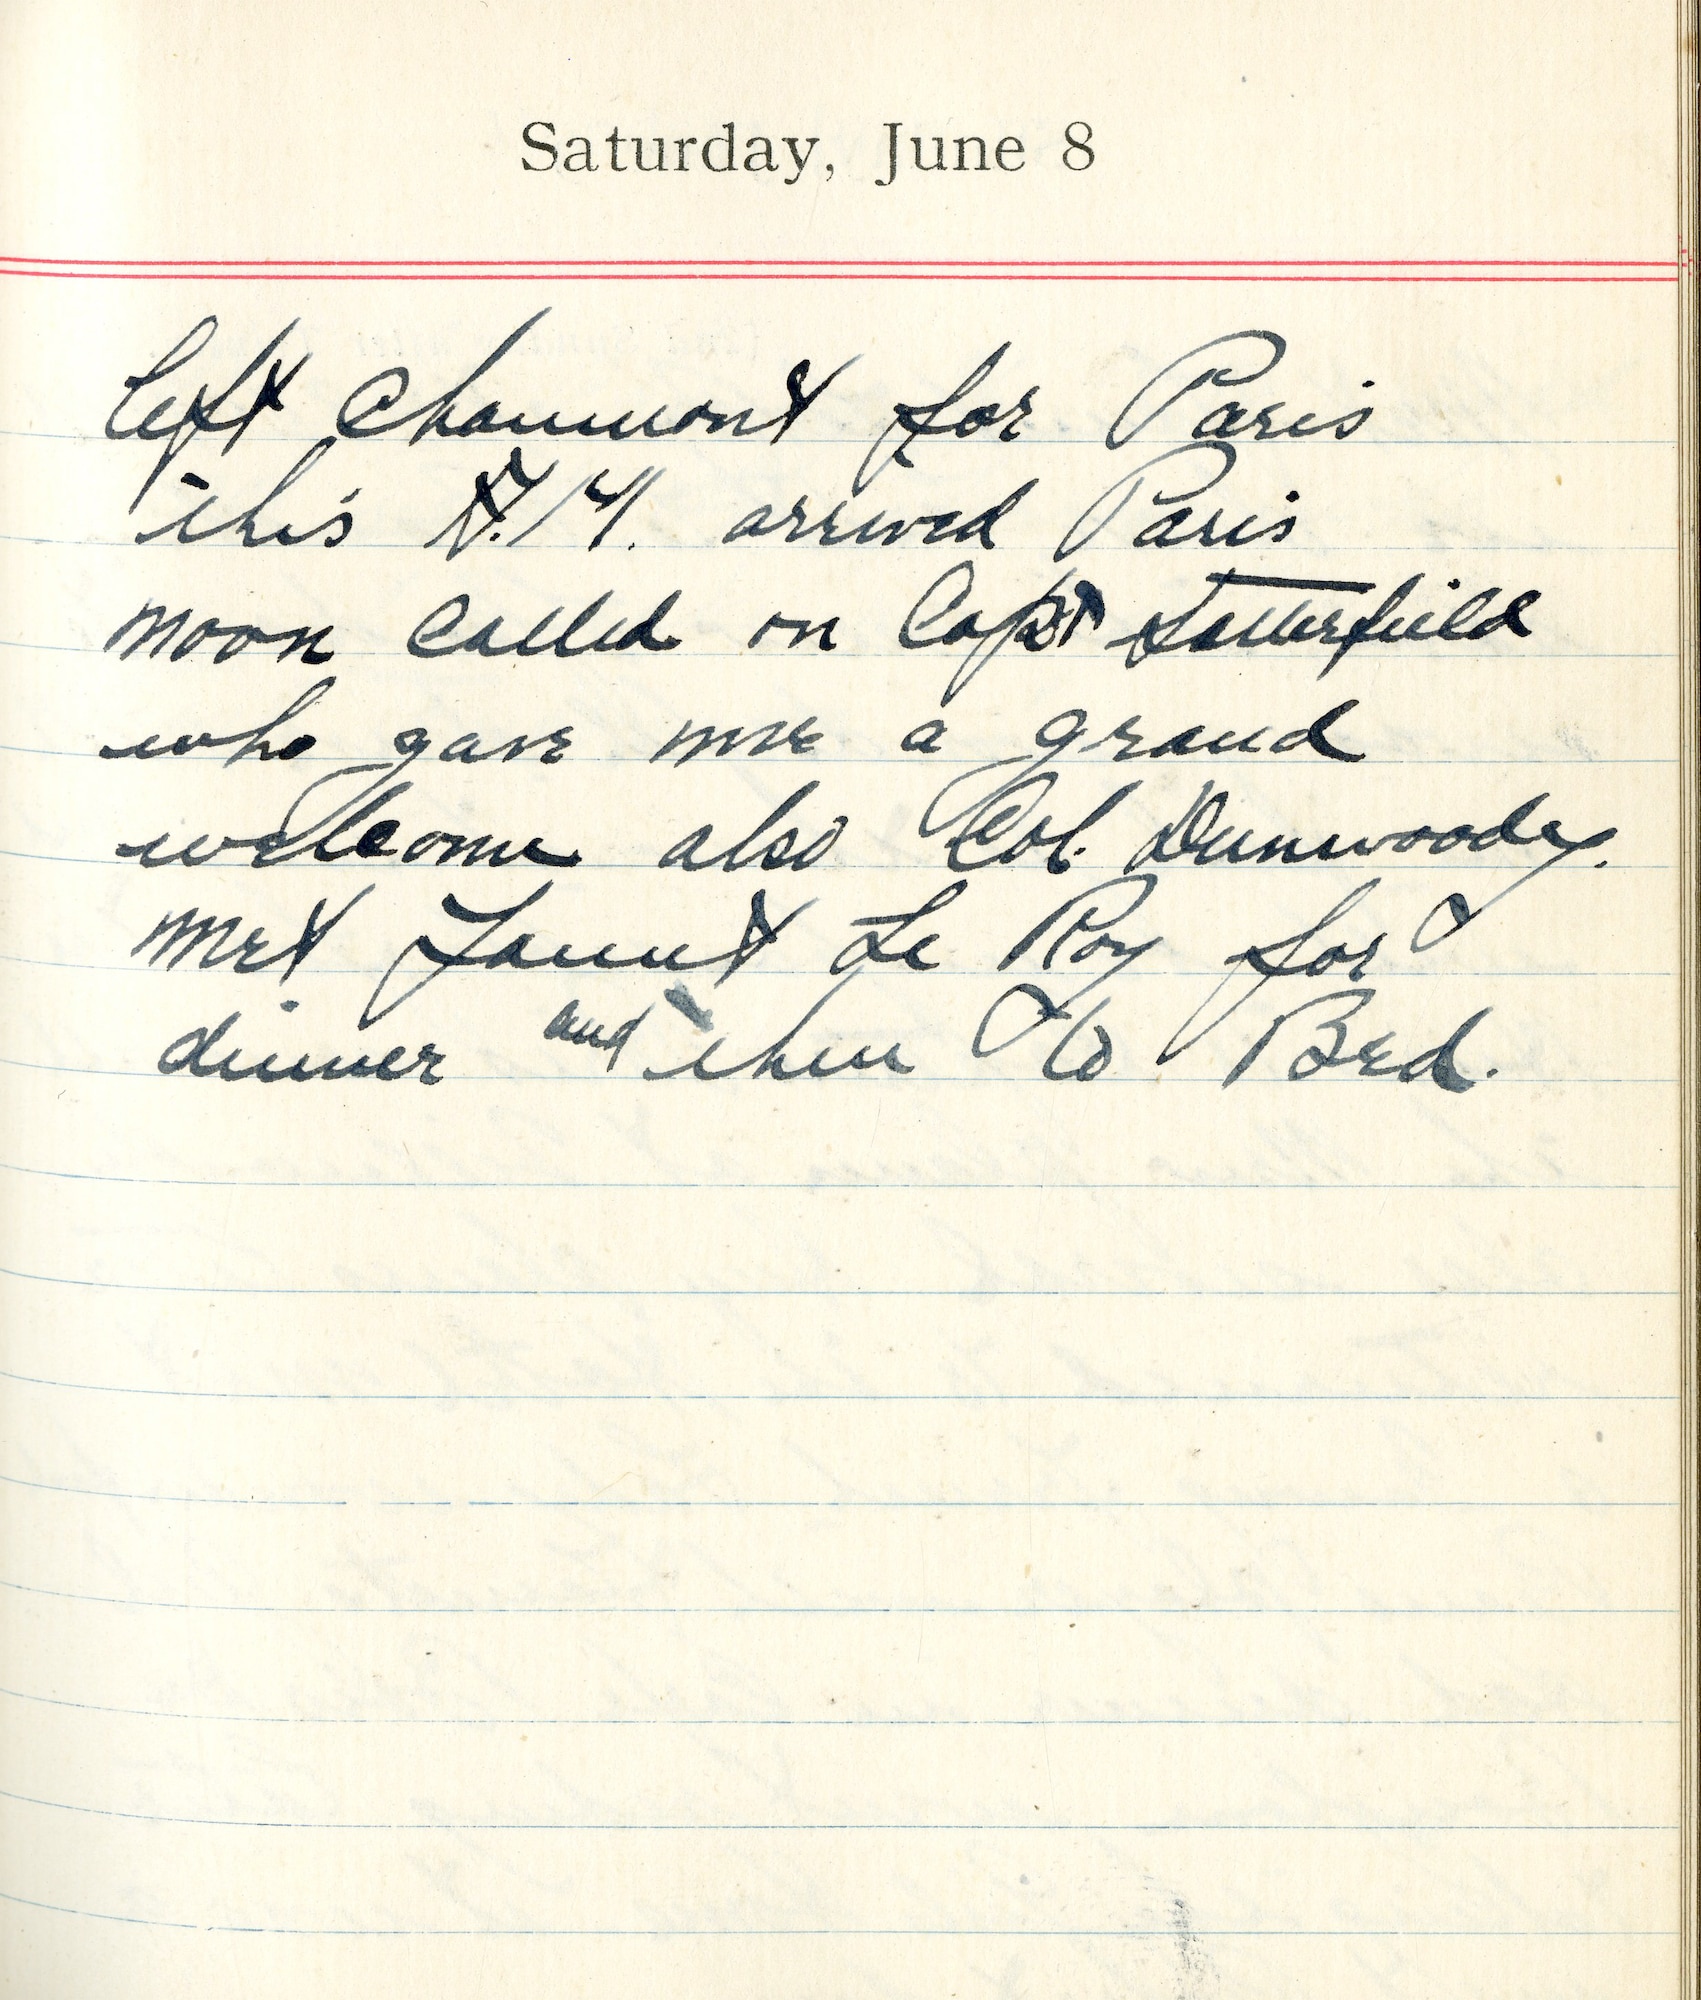 Saturday, June 8
left Chaumont for Paris
this A.M. arrived Paris
noon called on Capt Satterfield
who gave me a grand
welcome also Col. Dunwoody.
Met Lieut Le Roy for
dinner and then to Bed.